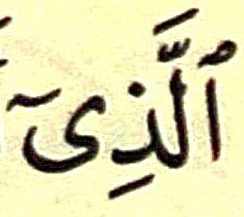 ٱلَّذِىٓ